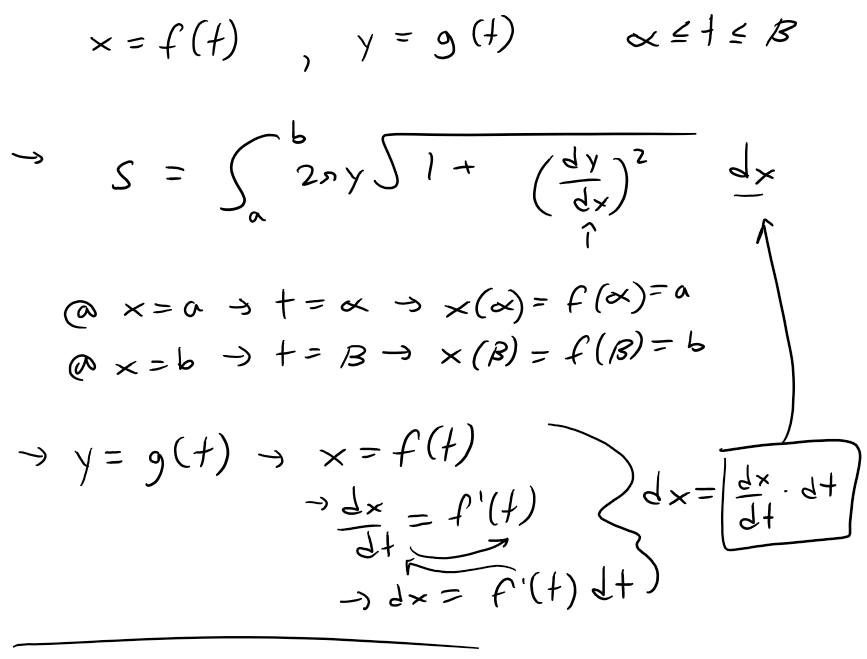 x = f(t) , y = g(t) α ≤ t ≤ β
→ S = ∫_a^b 2πy √(1 + (dy/dx)²) dx
@ x = a → t = α → x(α) = f(α) = a
@ x = b → t = β → x(β) = f(β) = b
→ y = g(t) → x = f(t)
→ dx/dt = f'(t)
dx = dx/dt · dt
→ dx = f'(t) dt